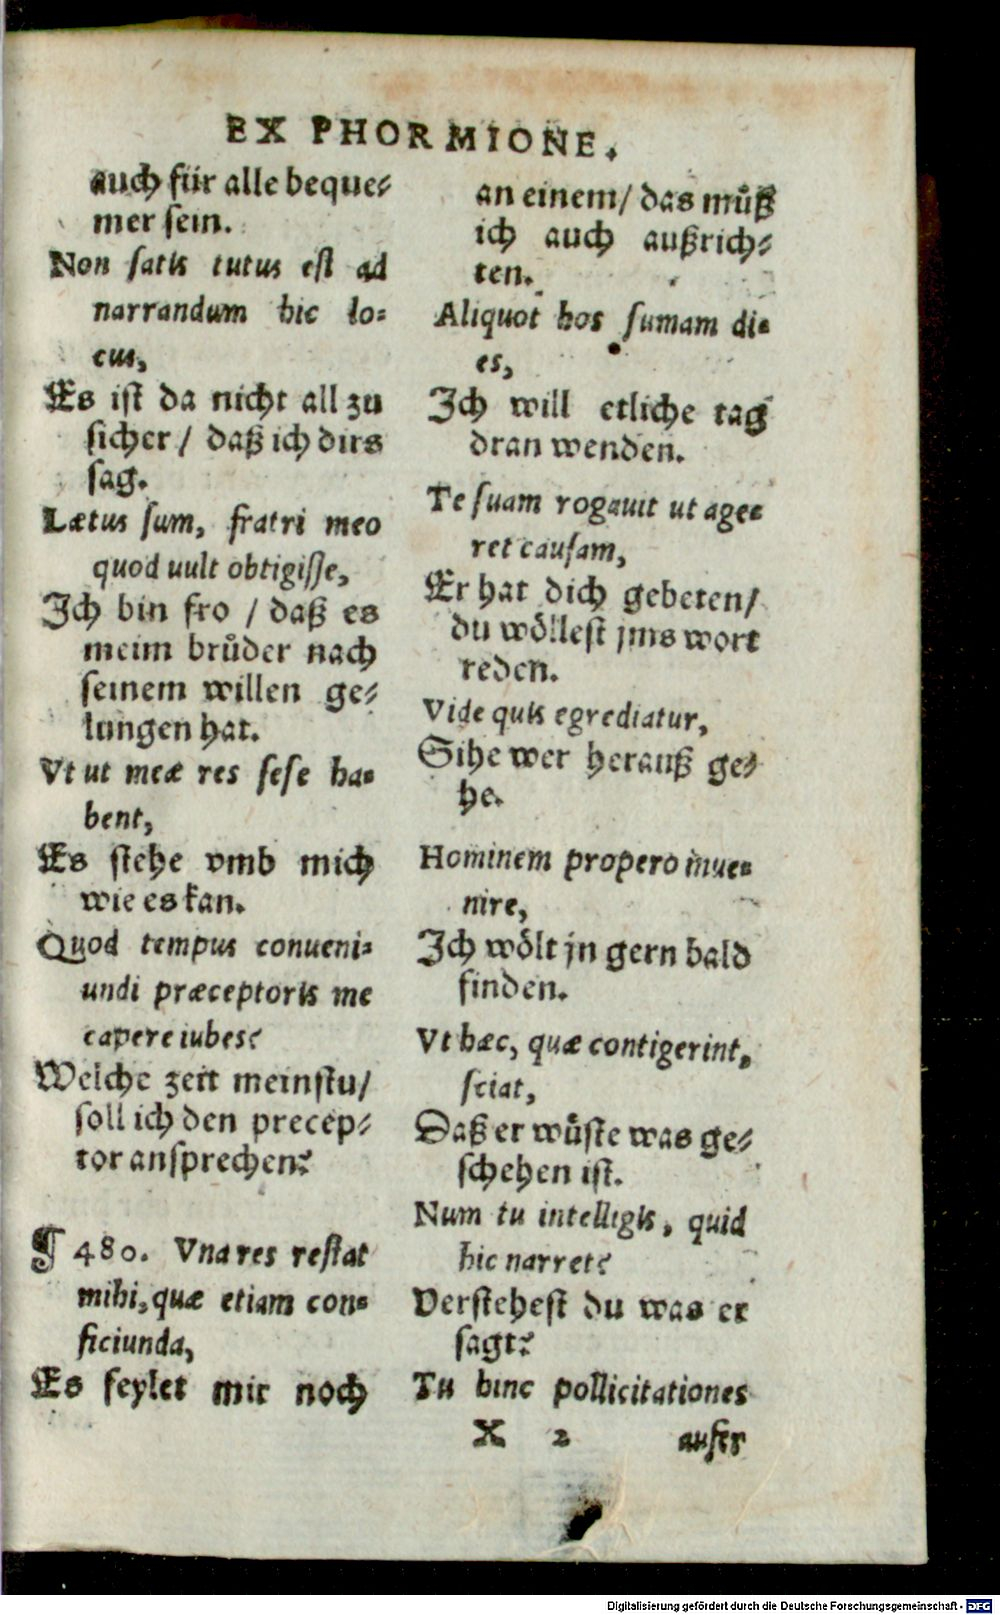 EX PHORMIONE.
auch für alle beque⸗
mer sein.
Non satis tutus est ad
narrandum hic lo⸗
cus,
Es ist da nicht all zu
sicher / daß ich dirs
sag.
Lætus sum, fratri meo
quod uult obtigisse,
Ich bin fro / daß es
meim brůder nach
seinem willen ge⸗
lungen hat.
Vt ut meæ res sese ha⸗
bent,
Es stehe vmb mich
wie es kan.
Quod tempus conueni⸗
undi præceptoris me
capere iubes?
Welche zeit meinstu/
soll ich den precep⸗
tor ansprechen?
¶ 480. Vna res restat
mihi, quæ etiam con⸗
ficiunda,
Es feylet mir noch
an einem/ das můß
ich auch außrich⸗
ten.
Aliquot hos sumam di⸗
es,
Ich will etliche tag
dran wenden.
Te suam rogauit ut age⸗
ret causam,
Er hat dich gebeten/
du wöllest jms wort
reden.
Vide quis egrediatur,
Sihe wer herauß ge⸗
he.
Hominem propero inue⸗
nire,
Ich wölt jn gern bald
finden.
Vt hæc, quæ contigerint,
sciat,
Daß er wüste was ge⸗
schehen ist.
Num tu intelligis, quid
hic narret?
Verstehest du was er
sagt?
Tu hinc pollicitationes
X 2 aufer
Digitalisierung gefördert durch die Deutsche Forschungsgemeinschaft - DFG